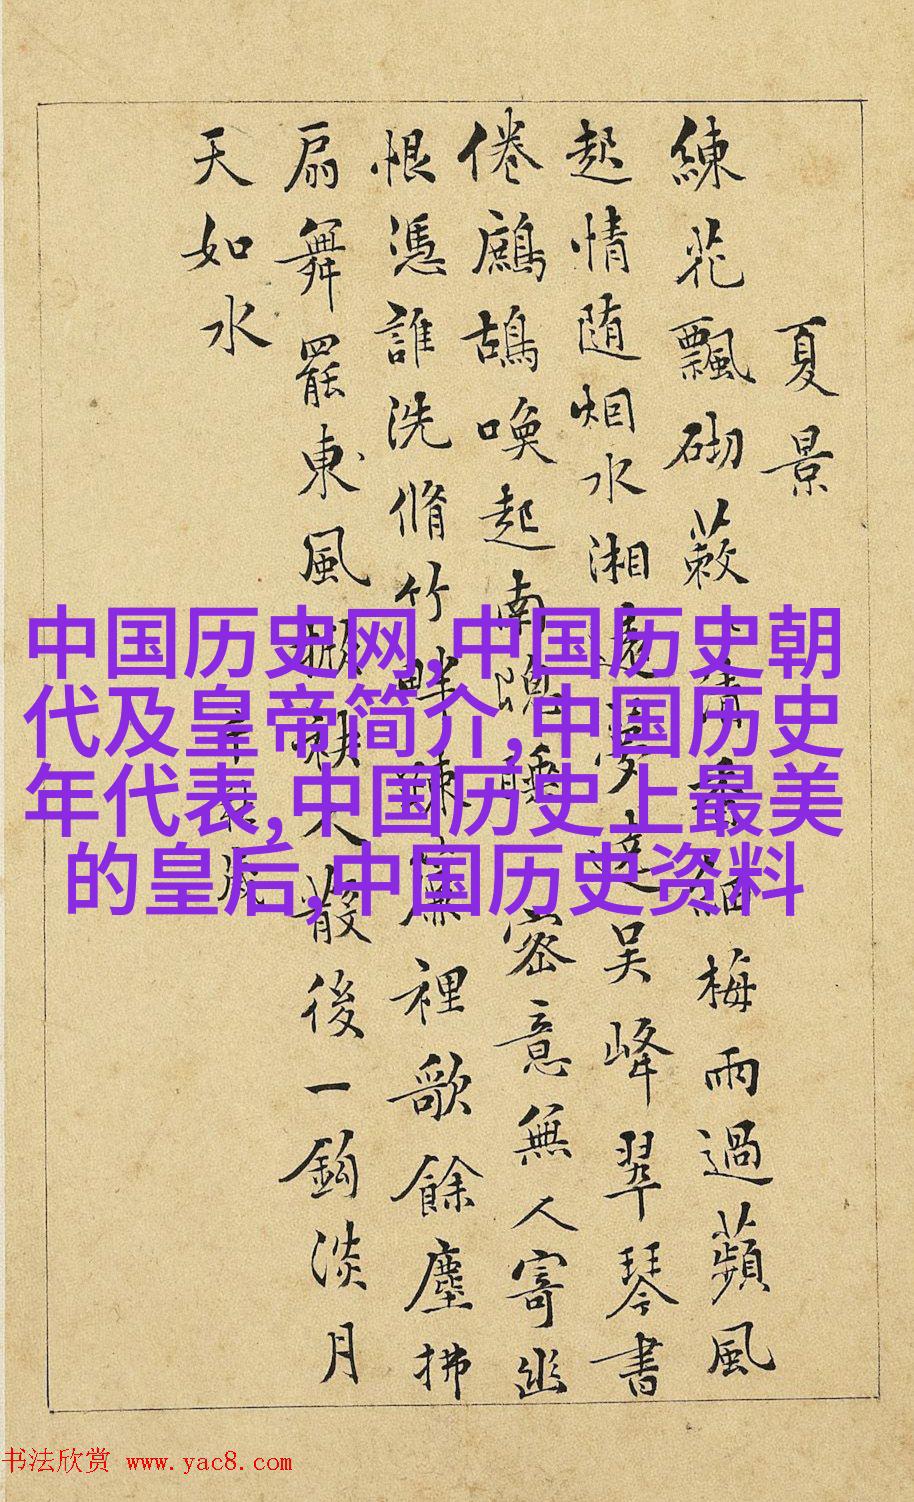 夏景
練花飄砌蔌清香細梅雨過蘋風
起情随烟水湘遠夢遶吳峰翠琴書
倦鷓鴣喚起南睡密意無人寄幽
恨憑誰洗脩竹畔疎簾裡歌餘塵拂
扇舞罷東風掀袂人散後一鈎淡月
天如水
中国历史网,中国历史朝
代及皇帝简介,中国历史
年代表,中国历史上最美
的皇后,中国历史资料
书法欣赏 www.yac8.com